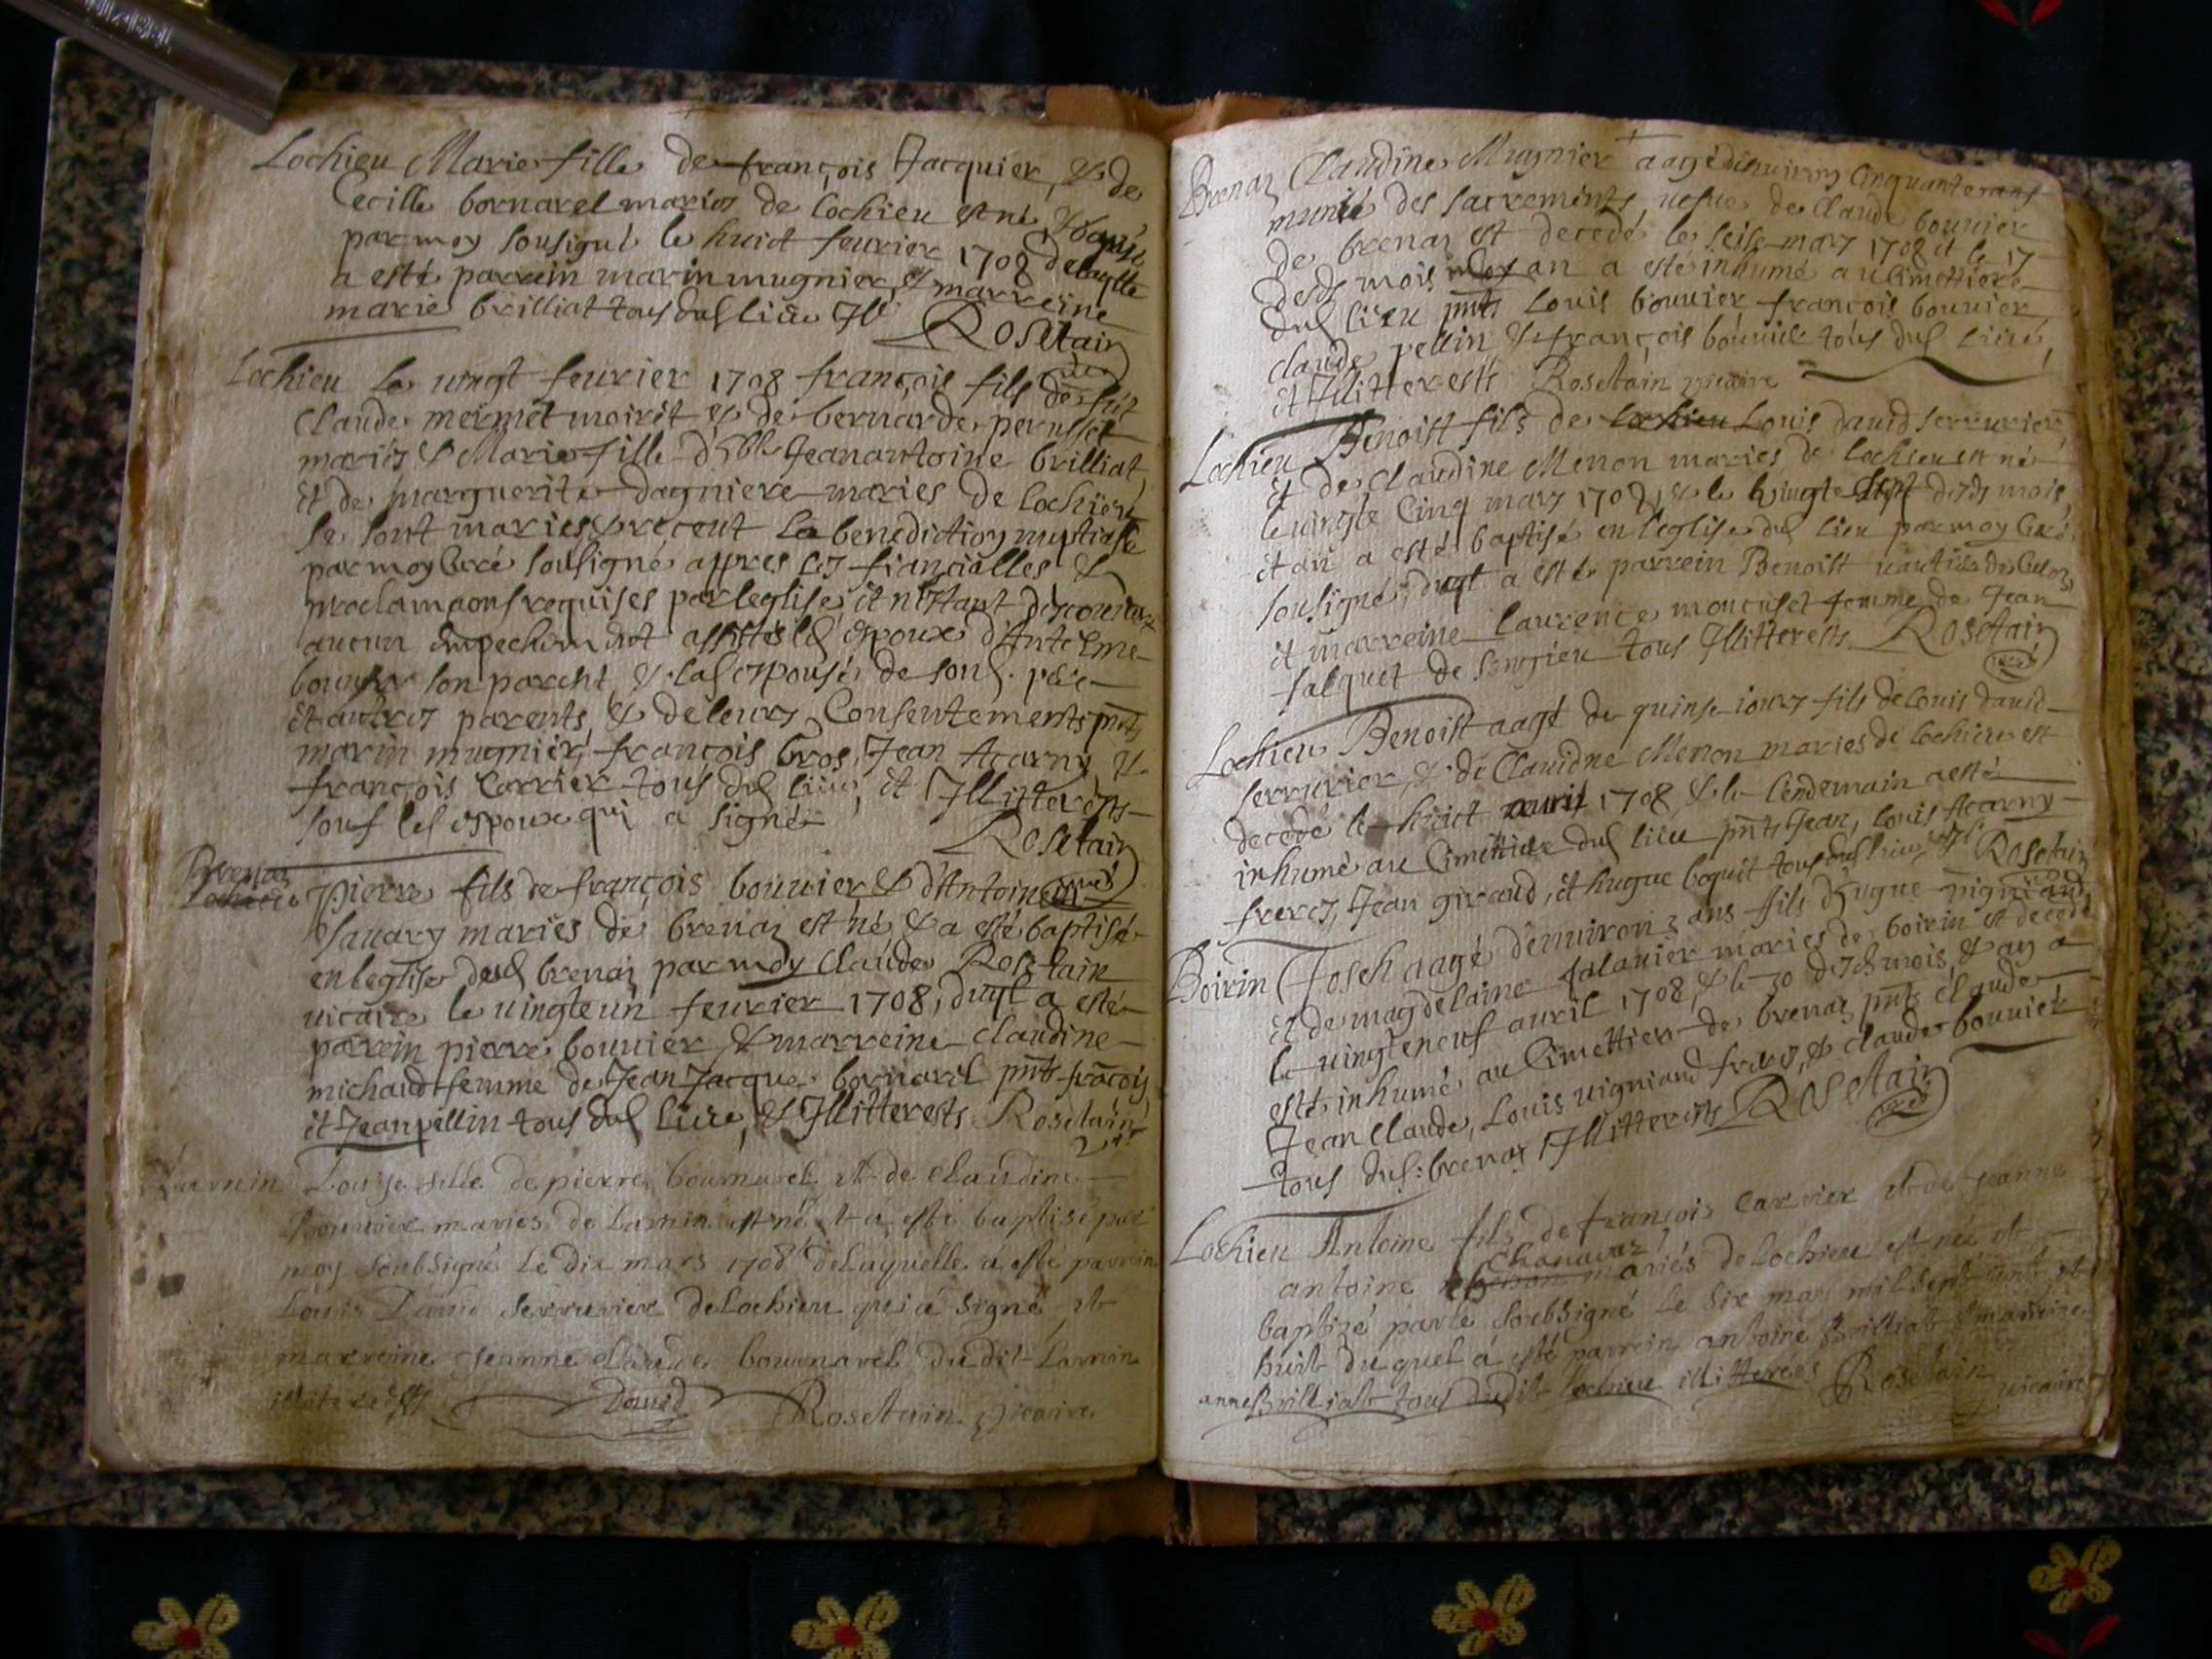 Lochieu Marie fille de françois Jacquier, & de
Cecille bornarel maries de lochieu est né & baptisé
par moy sousigné le huict feurier 1708 de laqlle
a esté parrein marin mugnier, & marreine
marie brilliat tous dud lieu Ill
Rosetain
curé
Lochieu le uingt feurier 1708 françois fils de fut
Claude mermet moirit & de bernarde perusset
mariés & Marie fille d'hble Jean antoine brilliat
et de marguerite dagniere maries de lochieu
se sont maries & receut la benediction nuptiale
par moy Curé sousigné appres les fiancialles &
proclamaons requises par leglise, et n'estant descouuert
aucun empechement assistés led espoux d'Antelme
bouuier son parent, & lad espousé de sond. pere
et autres parents, & de leurs Consentements pnts
marin mugnier, françois Gros, Jean Acarny, &
françois Carrier tous dud lieu, et Illitterests
souf led espoux qui a signé
Rosetain
curé
Brenaz
Lochieu Pierre fils de françois bouuier & d'Antoinette
Sauary maries de brenaz est né & a esté baptisé
en leglise dud brenaz par moy Claude Rosetain
uicaire le uingte un feurier 1708, duql a esté
parrein pierre bouuier & marreine claudine
michaud femme de Jean Jacque bornarel pnts frãcois
et Jean pellin tous dud lieu, & Illitterests Rosetain
Larnin Louise fille de pierre bournarel et de Claudine
Bouuier maries de Larnin est né et a esté baptisé par
moy soubsigné le dix mars 1708 de laquelle a esté parrein
Louis Dauid serrurier de Lochieu qui a signé et
marreine Jeanne Claude bournarel dudit Larnin
illiterests Dauid Rosetain Vicaire
Brenaz Claudine Mugnier aagé d'enuiron Cinquante ans
munié des sacrements uefue de Claude bouuier
de brenaz est decedé le seise mars 1708 et le 17
desd mois an a esté inhumé au Cimettiere
dud lieu pnts Louis bouuier, françois bouuier,
claude pellin & françois bouuier tous dud lieu,
et Illitterests Rosetain vicaire
Lochieu Benoist fils de lochieu Louis dauid serrurier,
et de Claudine Menon maries de lochieu est né
le uingte Cinq mars 1708, & le uingte sept desds mois,
et an a esté baptisé en leglise dud lieu par moy Curé
sousigné, duql a esté parrein Benoist
et marreine laurence femme de Jean
falquet de songieu tous Illitterests. Rosetain
curé
Lochieu Benoist aagé de quinse iours fils de Louis dauid
serrurier, & de Clauidne Menon maries de lochieu est
decedé le huict auril 1708 & le lendemain a esté
inhumé au Cimettiere dud lieu pnts Jean, Louis Acarny
freres, Jean giraud, et hugue boquit tous dud lieu Rosetain
curé
Boirin Joseh aagé d'enuiron 3 ans fils d'hugue uigniand
et de magdelaine falauier maries de boirin est decedé
le uingteneuf auril 1708, & le 30 desds mois, & an a
esté inhumé au Cimettiere de brenaz pnts claude
Jean Claude, Louis uigniand freres, & claude bouuier
tous dud: brenaz Illitterests Rosetain
curé
Lochieu Antoine fils de françois Carrier et de Jeanne
Chanauaz
antoine mariés de lochieu est née et
baptizé par le soubsigné le six mars mil sept cent et
huit du quel a esté parrein antoine Brilliat & marreine
anne Brilliat tous dudit Lochieu illitterees Rosetain uicaire